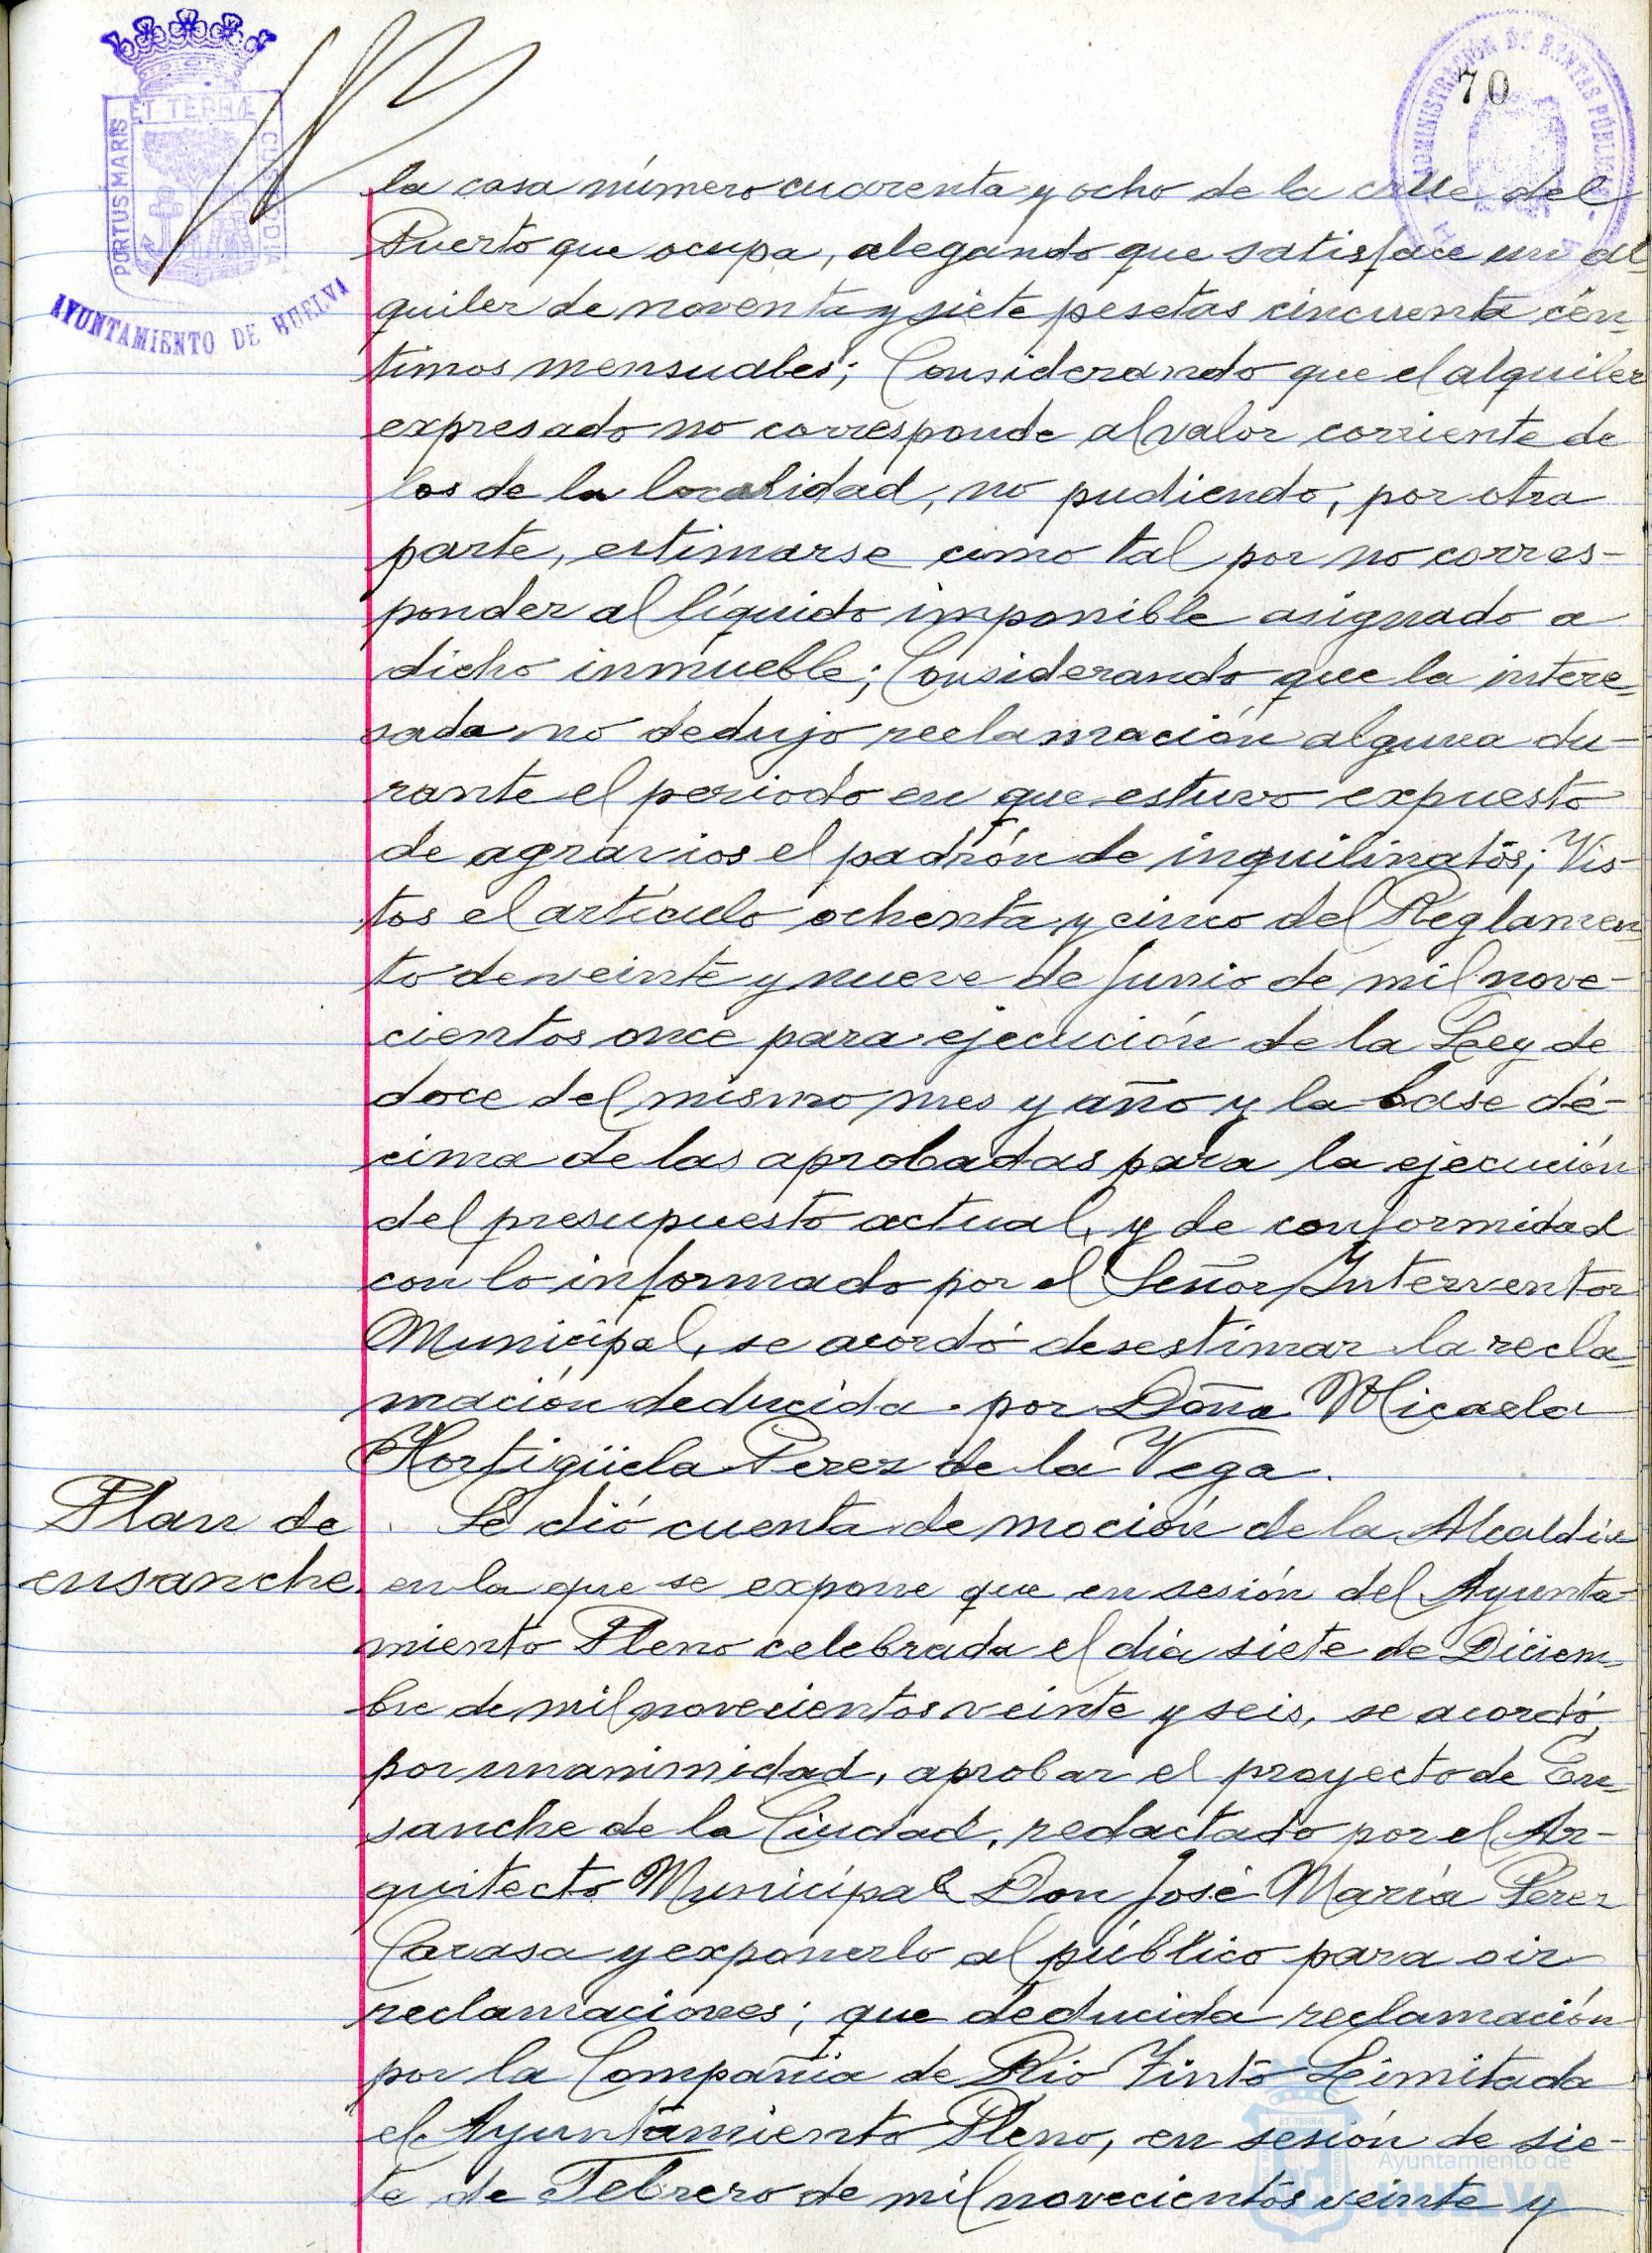 70
ET TERRÆ
PORTUS MARIS
CUSTODIA
AYUNTAMIENTO DE HUELVA
ADMINISTRACIÓN DE RENTAS PÚBLICAS
la casa número cuarenta y ocho de la calle del
Puerto que ocupa, alegando que satisface un al-
quiler de noventa y siete pesetas cincuenta cén-
timos mensuales; Considerando que el alquiler
expresado no corresponde al valor corriente de
los de la localidad, no pudiendo, por otra
parte, estimarse como tal por no corres-
ponder al líquido imponible asignado a
dicho inmueble; Considerando que la intere-
sada no dedujo reclamación alguna du-
rante el periodo en que estuvo expuesto
de agravios el padrón de inquilinatos; Vis-
tos el artículo ochenta y cinco del Reglamen-
to de veinte y nueve de Junio de mil nove-
cientos once para ejecución de la Ley de
doce del mismo mes y año y la base dé-
cima de las aprobadas para la ejecución
del presupuesto actual, y de conformidad
con lo informado por el Señor Interventor
Municipal, se acordó desestimar la recla-
mación deducida por Doña Micaela
Hortigüela Perez de la Vega.
Plan de
ensanche.
Se dió cuenta de moción de la Alcaldía
en la que se expone que en sesión del Ayunta-
miento Pleno celebrada el día siete de Diciem-
bre de mil novecientos veinte y seis, se acordó,
por unanimidad, aprobar el proyecto de En-
sanche de la Ciudad, redactado por el Ar-
quitecto Municipal Don José María Perez
Carasa y exponerlo al público para oir
reclamaciones; que deducida reclamación
por la Compañía de Rio Tinto Limitada
el Ayuntamiento Pleno, en sesión de sie-
te de Febrero de mil novecientos veinte y
Ayuntamiento de
HUELVA